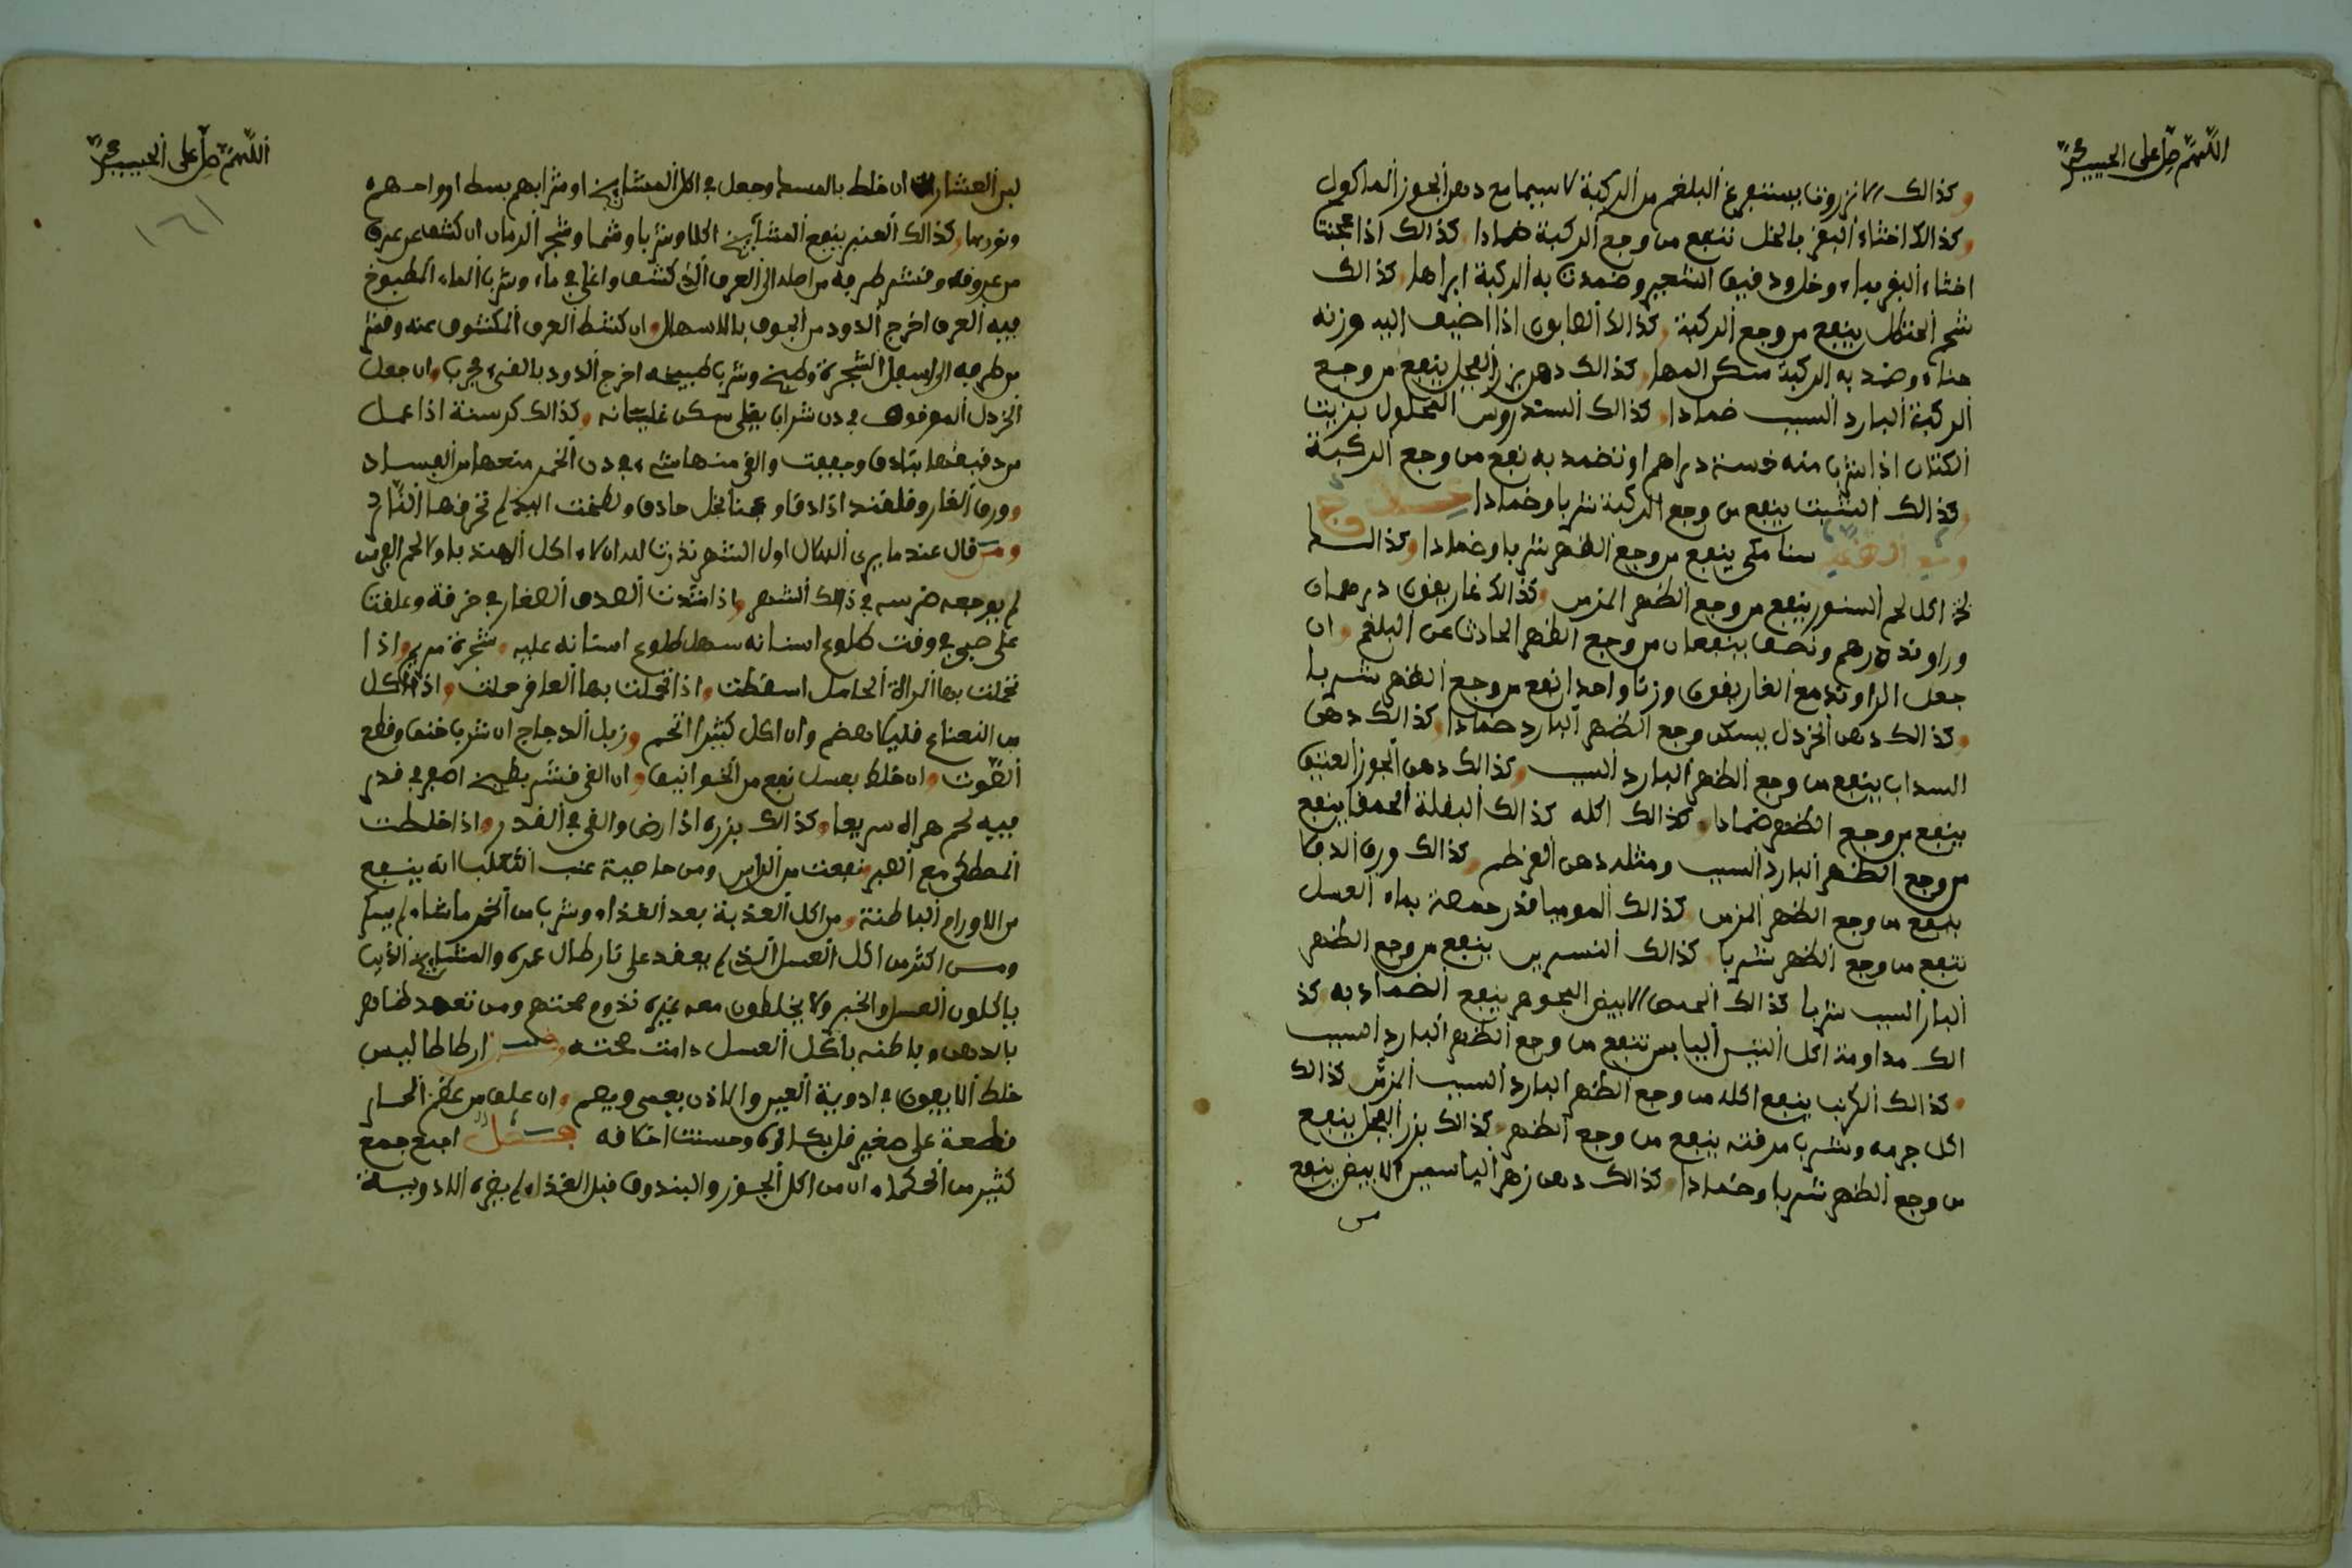 اللهم صل على الحبيب محمد
وكذالك الانزروت يستفرغ البلغم من الركبة لاسيما مع دهن الجوز الماكول
وكذالك اخثاء البقر بالخل تنفع من وجع الركبة ضمادا كذالك اذا عجنت
اخثاء البقر بماء وخل ودقيق الشعير وضمدت به الركبة ابراها كذالك
شحم الحنظل ينفع من وجع الركبة كذالك الصابون اذا اضيف اليه وزنه
حناء وضمد به الركبة سكن المها كذالك دهن بزر الفجل ينفع من وجع
الركبة البارد السبب ضمادا كذالك السندروس المحلول بزيت
الكتان اذا شرب منه خمسة دراهم او تضمد به نفع من وجع الركبة
كذالك الشبت ينفع من وجع الركبة شربا وضمادا
سنا مكي ينفع من وجع الظهر شربا وضمادا وكذالك
اكل لحم السنور ينفع من وجع الظهر المزمن وكذالك غاريقون درهمان
وراوند درهم ونصف ينفعان من وجع الظهر الحادث عن البلغم وان
جعل الراوند مع الغاريقون وزنا واحدا نفع من وجع الظهر شربا
وكذالك دهن الخردل يسكن وجع الظهر البارد ضمادا وكذالك دهن
السداب ينفع من وجع الظهر البارد السبب وكذالك دهن الجوز العتيق
ينفع من وجع الظهر ضمادا وكذالك اكله كذالك البقلة الحمقا ينفع
من وجع الظهر البارد السبب ومثله دهن القرطم وكذالك ورق الدفلا
ينفع من وجع الظهر المزمن كذالك الموميا قدر حمصة بماء العسل
تنفع من وجع الظهر شربا كذالك النسرين ينفع من وجع الظهر
البارد السبب شربا كذالك الحمص الابيض ينفع الضماد به كذ
الك مداومة اكل التين اليابس تنفع من وجع الظهر البارد السبب
وكذالك الكرنب ينفع اكله من وجع الظهر البارد السبب المزمن كذالك
اكل جرمه وشرب مرقته ينفع من وجع الظهر كذالك بزر الفجل ينفع
من وجع الظهر شربا وضمادا كذالك دهن زهر الياسمين الابيض ينفع
من
اللهم صل على الحبيب محمد
١٦١
لبن العشار ان خلط بالمسك وجعل في اكل المشايخ او شرابهم بسط ارواحهم
وكذالك العنبر ينفع المشايخ اكلا وشربا وشما وشجر الرمان ان كشف عن عرق
من عروقه وقشر طرفه من اصله الى العرق الذي كشف واغلي في ماء وشرب الماء المطبوخ
فيه العرق اخرج الدود من الجوف بالاسهال وان كشط العرق المكشوف عنه وقشر
من طرفه الى اسفل الشجرة وطبخ وشرب طبيخه اخرج الدود بالقيء مجرب وان جعل
الخردل المدقوق في دن شراب يغلي سكن غليانه وكذالك كرسنة اذا عمل
من دقيقها بنادق وجففت والقي منها شيء في دن الخمر منعها من الفساد
وورق الغار وقلقند اذا دقا وعجنا بخل حاذق ولطخت اليد لم تحرقها النار
ومن قال عندما يرى الهلال اول الشهر نذرت لله ان لا اكل الهندبا ولا لحم الفرس
لم يوجعه ضرسه في ذالك الشهر واذا شدت الصدف الصغار في خرقة وعلقت
على صبي في وقت طلوع اسنانه سهل طلوع اسنانه عليه وشجرة مريم اذا
تحملت بها المراة الحامل اسقطت واذا تحملت بها العاقر حملت واذا اكل
من النعناع قليلا هضم وان اكل كثيرا اتخم وزبل الدجاج ان شرب خنق وقطع
الصوت وان خلط بعسل نفع من الخوانيق وان القي قشر بطيخ اصفر في قدر
فيه لحم هراه سريعا وكذالك بزره اذا رض والقي في القدر واذا خلطت
المصطكى مع الصبر نفعت من الراس ومن خاصية عنب الثعلب انه ينفع
من الاورام الباطنة ومن اكل بعد الغذاء وشرب من الخمر ما شاء لم يسكر
ومن اكثر من اكل العسل الذي لم يعقد على نار طال عمره والمشايخ الذين
ياكلون العسل والخبز ولا يخلطون معه غيره تدوم صحتهم ومن تعهد ظاهره
بالدهن وباطنه باكل العسل دامت صحته ارطاطاليس
خلط الافيون في ادوية العين والاذن يعمي ويصم وان علق من عظم الحمار
قطعة على صغير قل بكاؤه وحسنت اخلاقه فصل اجمع جمع
كثير من الحكماء ان من اكل الجوز والبندق قبل الغذاء لم يضره الادوية